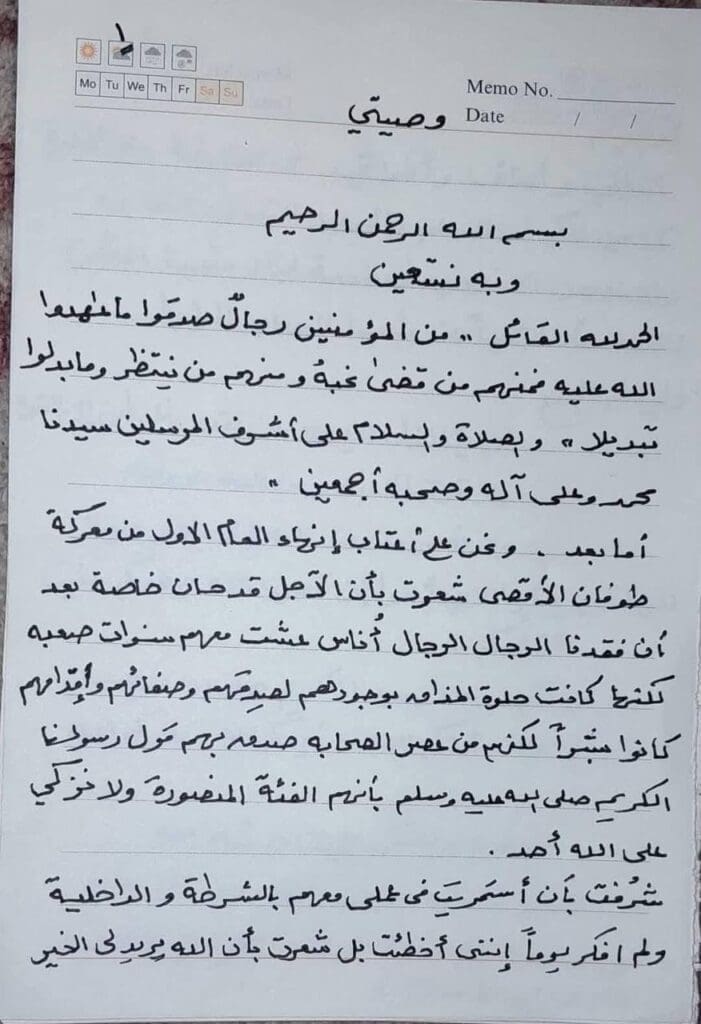 ١
Mo Tu We Th Fr Sa Su
Memo No.
Date / /
وصيتي
بسم الله الرحمن الرحيم
وبه نستعين
الحمد لله القائل " من المؤمنين رجالٌ صدقوا ما عاهدوا
الله عليه فمنهم من قضىٰ نحبهُ ومنهم من ينتظر وما بدلوا
تبديلا " والصلاة والسلام على أشرف المرسلين سيدنا
محمد وعلى آله وصحبه أجمعين "
أما بعد . ونحن على أعتاب إنهاء العام الاول من معركة
طوفان الأقصى شعرت بأن الآجل قد حان خاصة بعد
أن فقدنا الرجال الرجال أُناس عشت معهم سنوات صعبه
لكنها كانت حلوة المذاق بوجودهم لصدقهم وصفائهم وإقدامهم
كانوا بشراً لكنهم من عصر الصحابه صدق بهم قول رسولنا
الكريم صلى الله عليه وسلم بأنهم الفئة المنصورة ولا نزكي
على الله أحد .
شرُفت بأن أستمريت في عملي معهم بالشرطة والداخلية
ولم افكر يوماً إنني أخطئت بل شعرت بأن الله يريد لي الخير